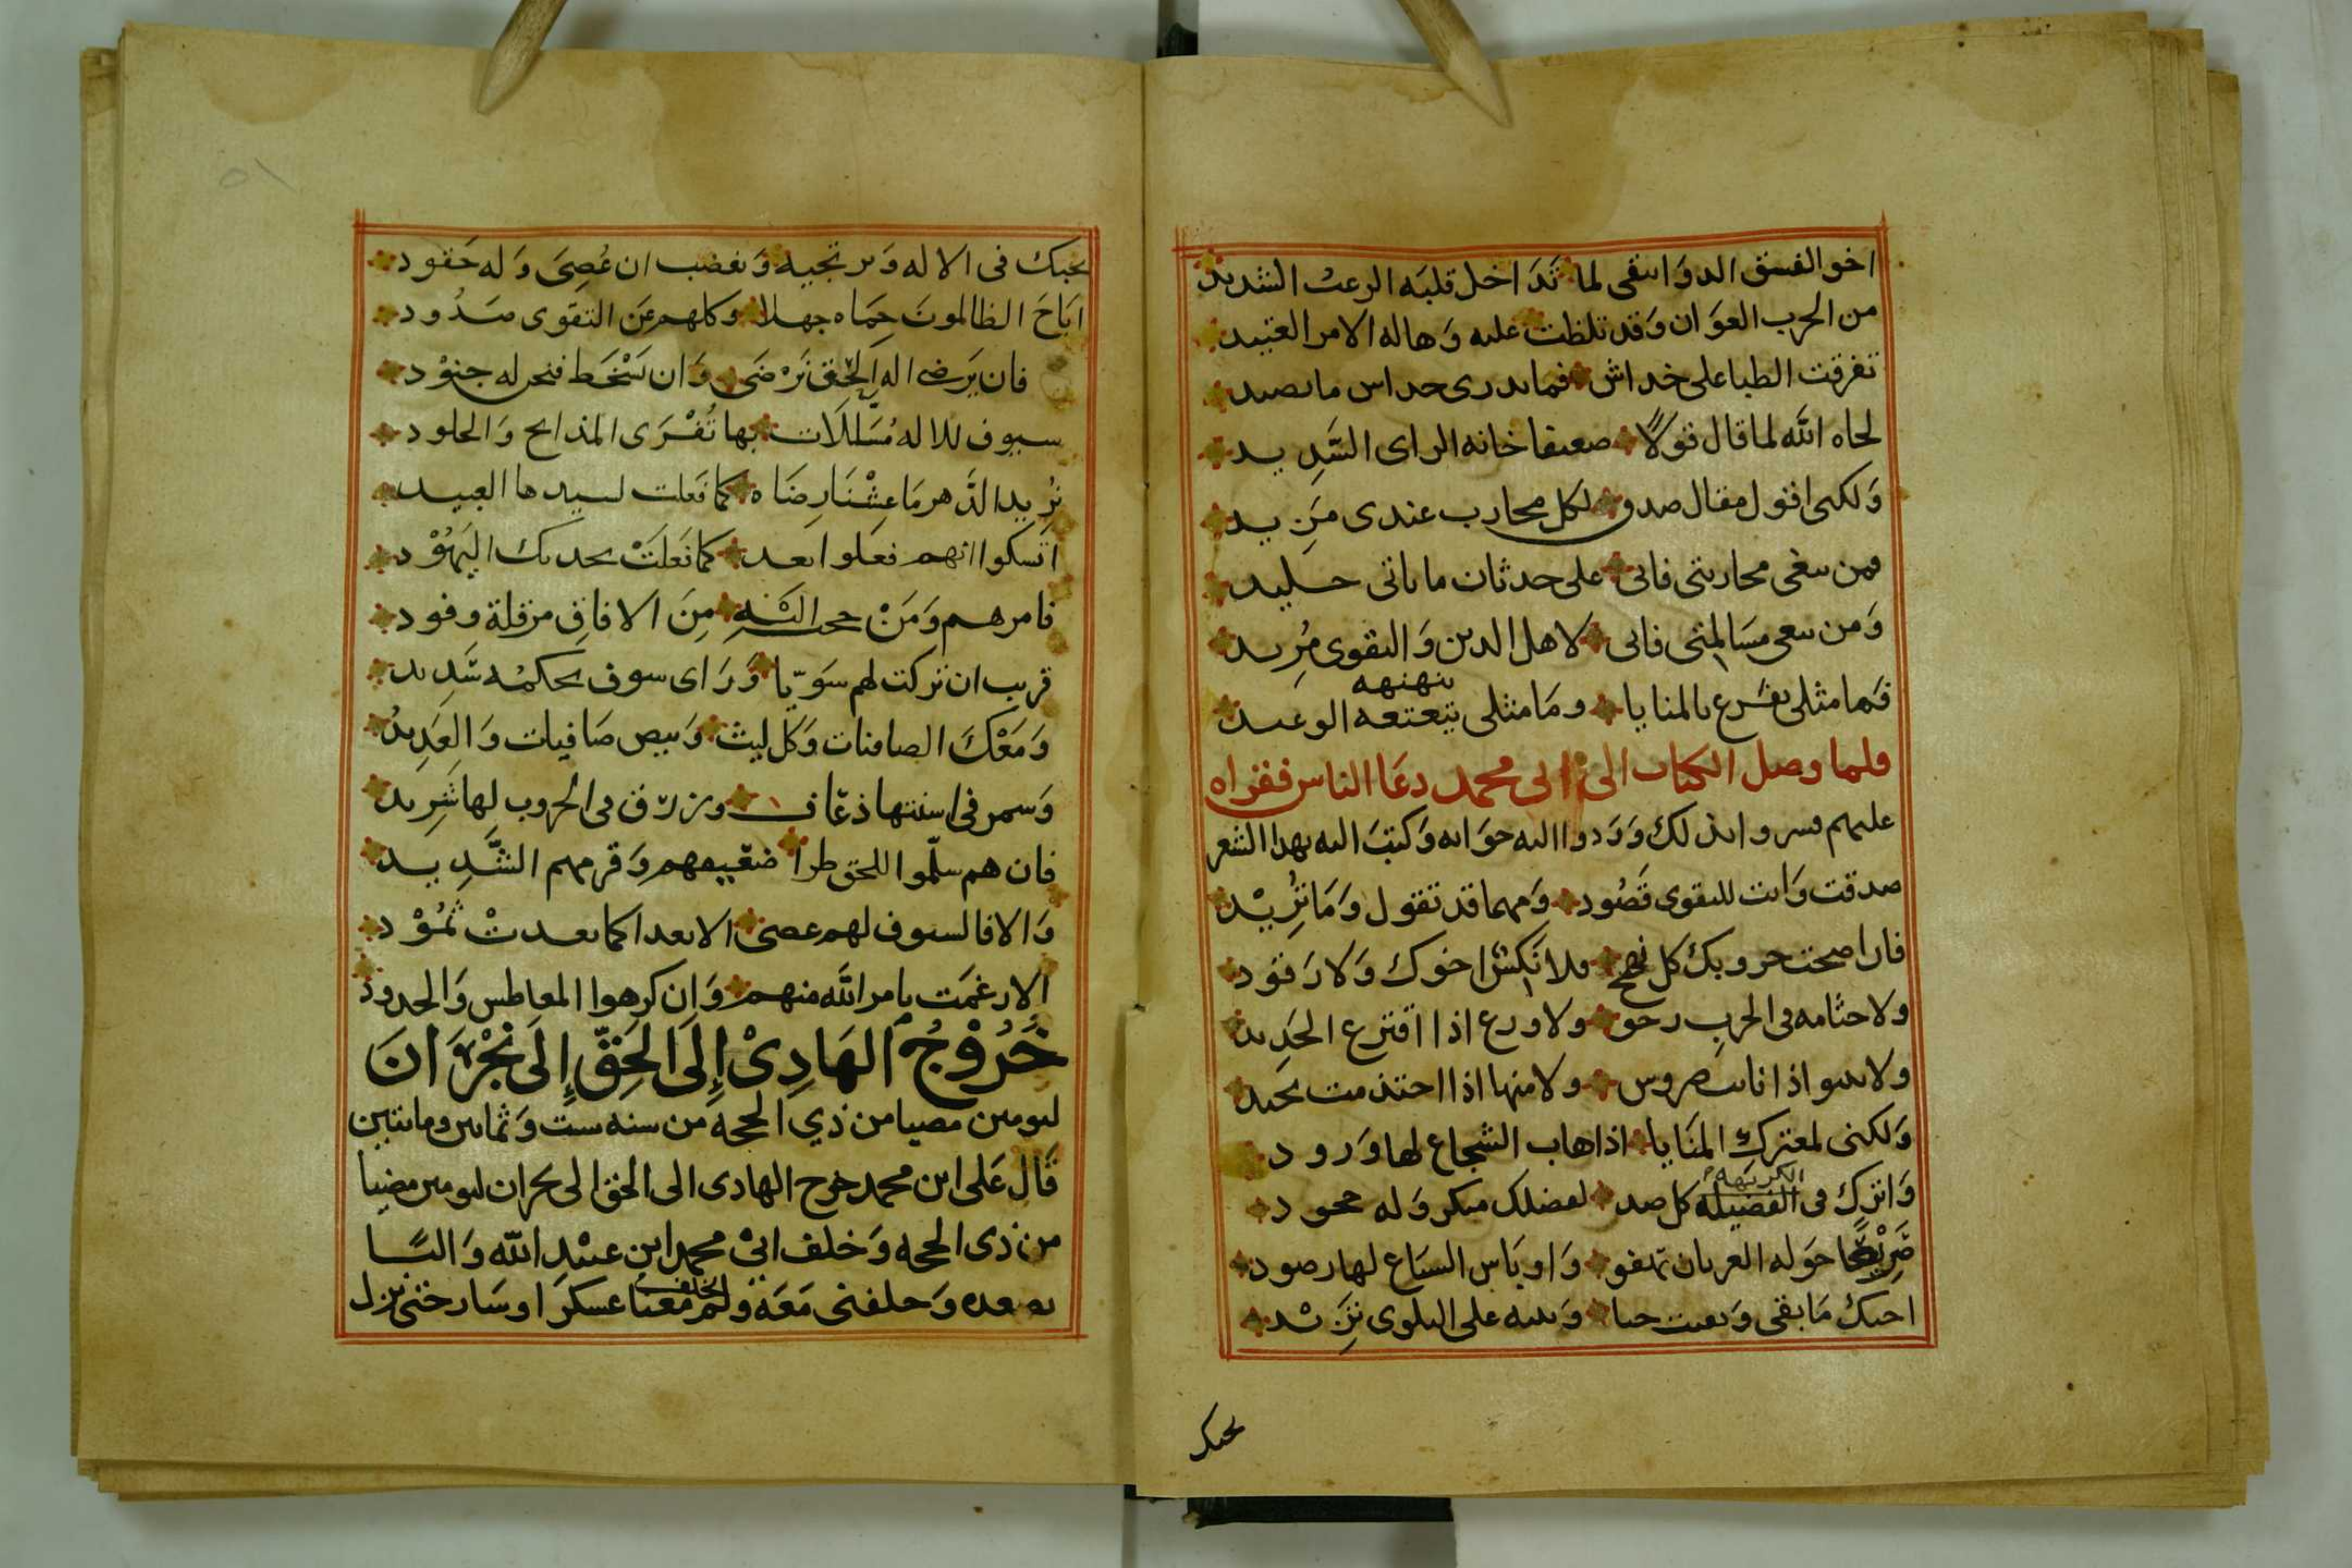 اخو الفسق الدوانيقي لما تَدَاخل قلبَه الرعبُ الشديد
من الحرب العوَان وَقد تلظت عليه وَهاله الامر العتيد
تفرقت الظبا على خداش فما يدرى خداش ما يصيد
لحاه الله لما قال قولاً ضعيفا خانه الراى السَّدِيد
وَلكنى اقول مقال صدق لكل محارب عندى مَزيد
فمن يبغى محاربتى فانى على حدثان ما ياتى جليد
وَمن يبغى مسَالمتى فانى لاهل الدين وَالتقوى مُرِيد
فَما مثلى يفَزع بالمنايا وما مثلى يتعتعه الوعيد
ينهنهه
فلما وصل الكتاب الى ابى محمد دعَا الناس فقراه
عليهم فسروا بذلك وَرَدوا اليه جوَابه وَكتبَ اليه بهذا الشعر
صدقت وَانت للتقوى قَصُود وَمهما قد تقول وَمَا تُرِيْد
فان اصبحت حروبك كل نهج فلا نكس اخوك وَلا رَقود
ولا جثامه فى الحرب رخو ولا ورع اذا اقترع الحَديد
ولا ينبو اذا نابت ضروس ولا منها اذا احتذمت يحيد
وَلكنى لمعترك المنَايا اذا هاب الشجاع لها وَرود
وَاترك فى الفضيله كل ضد لفضلك منكر وَله جحود
الكريهه
صَرِيْعًا حوَله الغربان تهفو وَاوبَاش السبَاع لها رصود
احبك مَا بقى وَبقيت حيا وَبيبه على البلوى تَزِيْد
يحبك
٥١
يحبك فى الاله وَيرتجيه وَيغضب ان عُصِىَ وَله حَقود
ابَاحَ الظالمونَ حِمَاه جهلا وكلهم عَن التقوى صَدُود
فان يَرضى اله الحَق نَرْضَى وَان يَسْخَط فنحن له جنوْد
سيوف للاله مُسَلَّلَات بها تُفْرَى المذابح وَالجلود
نُرِيد الدَّهر مَا عِشْنَا رِضَاه كما فَعلت لسيدها العبيد
اتسكوا انهم فعَلوا بعد كما فَعَلَتْ بجدك اليَهُوْد
فامرهم وَمَنْ حج البَنِيهِ مِنَ الافاق مرقلة وفود
قريب ان تركت لهم سَويّا وَرَاى سوف يحكمُه شَدِيد
وَمَعْكَ الصافنات وَكل ليث وَبيض صَافيات وَالعَدِيدُ
وَسمر فى اسنتها ذعاف وزرق فى الحروب لها شَرِيد
فان هم سلّموا للحق طرا ضعَيفهم وَقرمهم الشَّدِيد
وَالا فالسيوف لهم عصى الا بعدا كما بعدتْ ثَمُوْد
الا رغمَت بامر الله منهم وَان كرهوا المعاطس وَالخدود
خُرُوْجُ الهَادِىْ إِلَى الحَقِّ إِلَى نَجْرَانَ
ليومين مضيا من ذي الحجة من سنه ست وَثمانين ومائتين
قَال عَلى ابن محمد خرج الهادى الى الحق الى نجران ليومين مضيا
من ذى الحجه وَخلف ابىْ محمد ابن عبيْدِ الله وَالنسَّا
بصعده وَخلفنى مَعَه ولم معنا عسكرَا وسَار حتى نزل
يخلف